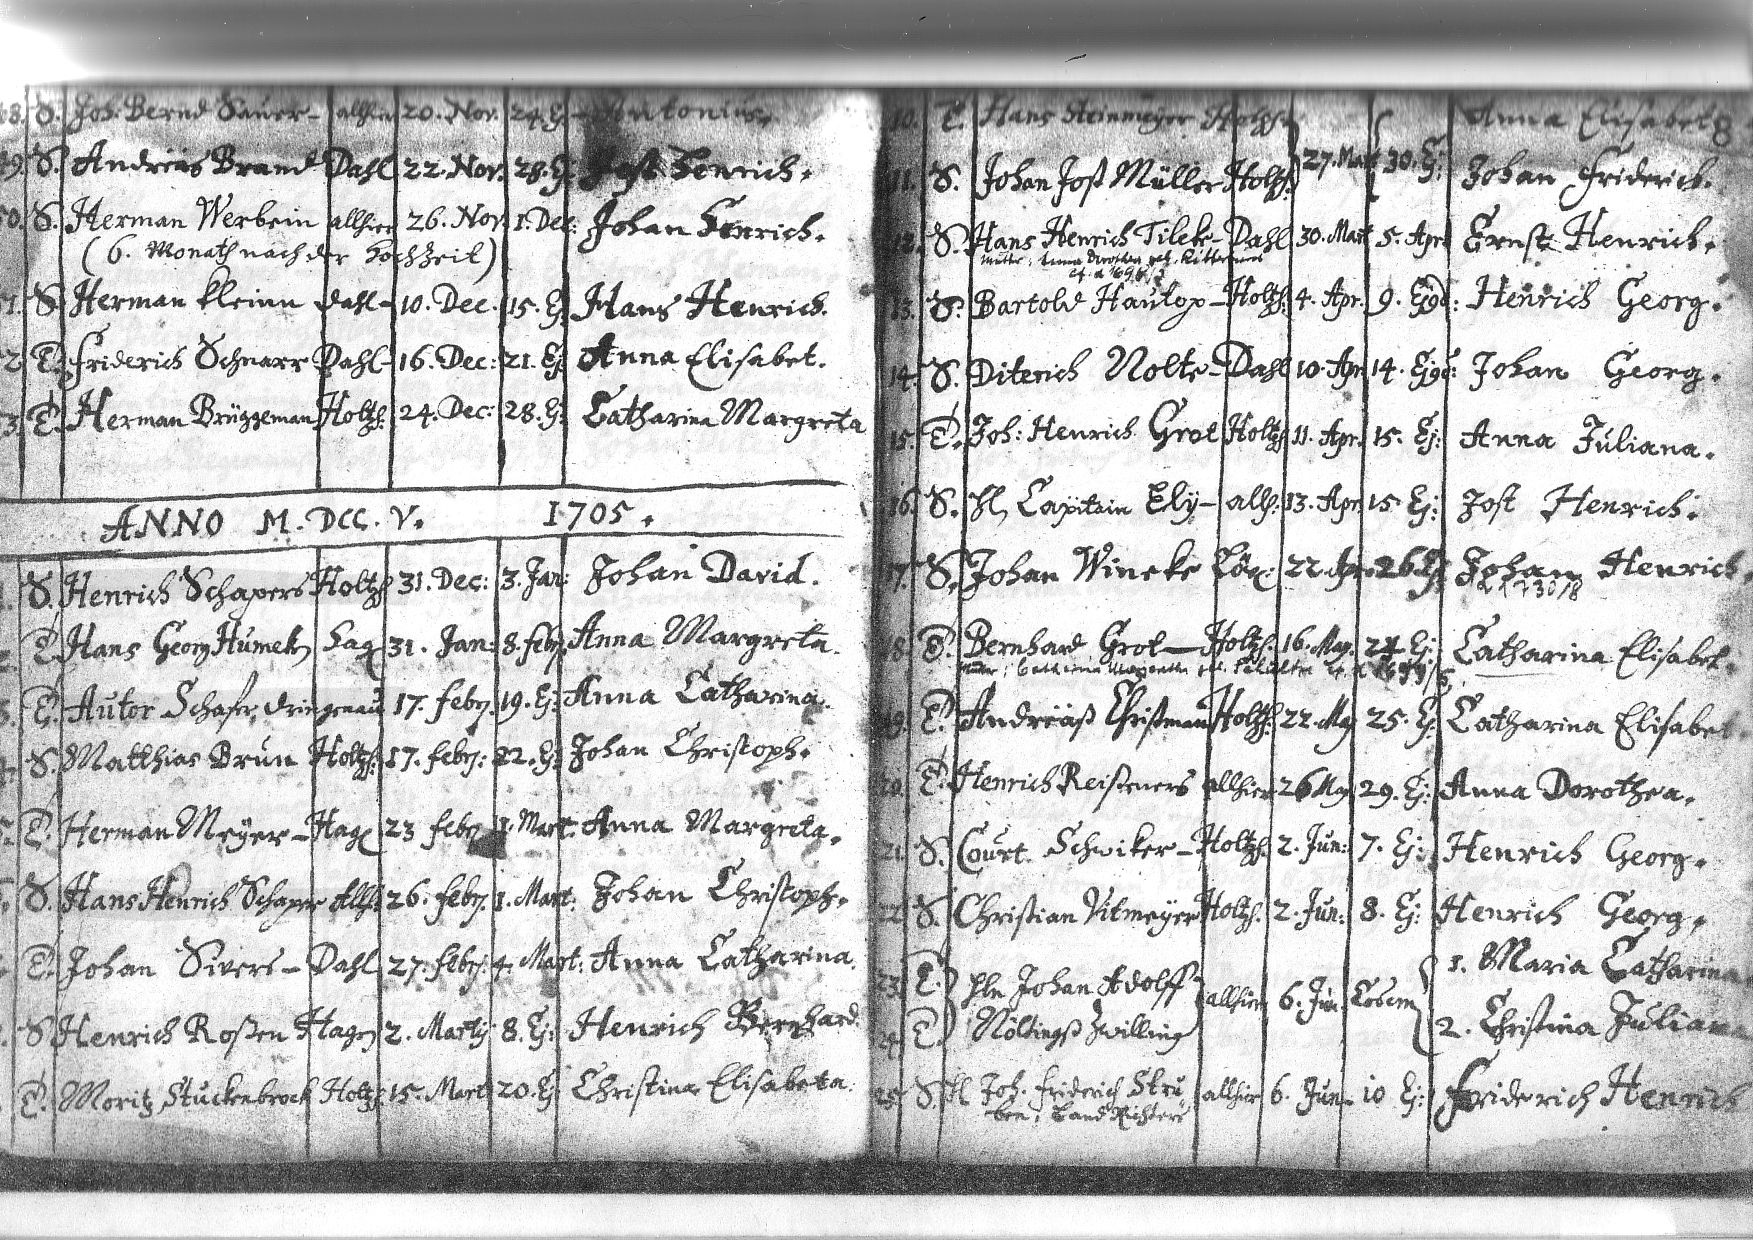 S. Joh. Bernd Sauer - allhie 20. Nov. 24. Ej. Antonius.
S. Andreas Brand Dahl 22. Nov. 28. Ej. Jost Henrich.
S. Herman Werbein allhier 26. Nov. 1. Dec: Johan Henrich.
(6. Monath nach der Hochzeit)
S. Herman Kleinn Dahl - 10. Dec. 15. Ej. Hans Henrich.
T. Friderich Schnarr Dahl - 16. Dec: 21. Ej. Anna Elisabet.
T. Herman Brüggeman Holtzh: 24. Dec: 28. Ej: Catharina Margreta
ANNO M.DCC.V. 1705.
S. Henrich Schapers Holtzh 31. Dec: 3. Jan: Johan David.
T. Hans Georg Humek Hag 31. Jan: 8. febr. Anna Margreta.
T. Autor Schafer 17. febr. 19. Ej: Anna Catharina.
S. Matthias Brun Holtzh: 17. febr: 22. Ej. Johan Christoph.
T. Herman Meyer - Hag 23 febr 1. Mart: Anna Margreta.
S. Hans Henrich Schaper Allh: 26. febr. 1. Mart: Johan Christoph.
T. Johan Sivers - Dahl 27. febr. 4. Mart: Anna Catharina.
S. Henrich Roßen Hagen 2. Martij 8. Ej: Henrich Bernhard.
T. Moritz Stuckenbrock Holtzh: 15. Mart 20. Ej Christina Elisabeta.
10. T. Hans Steinmeyer Holtzh. Anna Elisabet 8
11. S. Johan Jost Müller Holtzh. 27. Mart 30. Ej: Johan Friderich.
12. S. Hans Henrich Tileke - Dahl 30. Mart 5. Apr Ernst Henrich.
13. S. Bartold Hautop - Holtzh: 4. Apr. 9. Ejqd: Henrich Georg.
14. S. Diterich Nolte - Dahl 10. Apr 14. Ejqd: Johan Georg.
15. T. Joh: Henrich Grot Holtzh 11. Apr. 15. Ej: Anna Juliana.
16. S. H. Capitain Ely - allh. 13. Apr 15. Ej: Jost Henrich.
17. S. Johan Wineke 22. Apr 26 Ej Johan Henrich.
18. T. Bernhard Grot - Holtzh. 16. May. 24. Ej: Catharina Elisabet.
19. T. Andreas Christman Holtzh. 22. May 25. Ej: Catharina Elisabet.
20. T. Henrich Reisners allhier 26 May 29. Ej: Anna Dorothea.
21. S. Court Schwiker - Holtzh. 2. Jun: 7. Ej: Henrich Georg.
22 S. Christian Vitmeyer Holtzh. 2. Jun: 8. Ej: Henrich Georg.
23. T. Hln Johan Adolff allhier 6. Jun 1. Maria Catharina
24. T. Nöltings Zwilling 2. Christina Juliana
25. S. H Joh. Friderich Stru allhier 6. Jun. 10 Ej: Friderich Henrich
ben, Land Richters